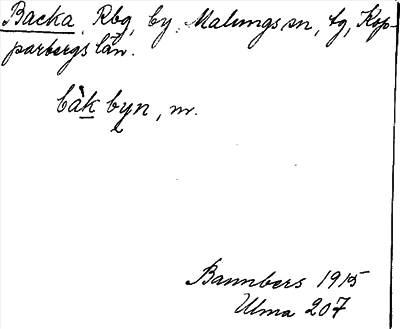 Backa, Rbg, by, Malungs sn, tg, Kop-
parbergs län.
bàk byn, nr.
Bannbers 1915
Ulma 207